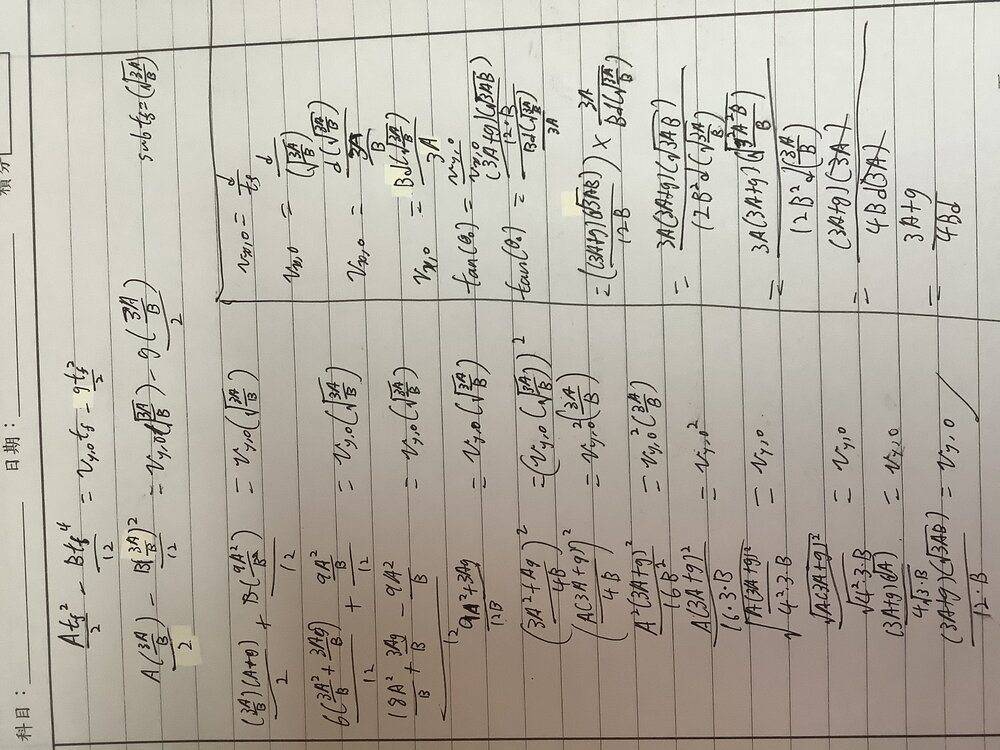 科目： 日期：
積分
\frac{At_f^2}{2} - \frac{Bt_f^4}{12} = v_{y,0} t_f - \frac{gt_f^2}{2}
sub t_f = (\sqrt{\frac{3A}{B}})
\frac{A(\frac{3A}{B})}{2} - \frac{B(\frac{3A}{B})^2}{12} = v_{y,0}(\sqrt{\frac{3A}{B}}) - \frac{g(\frac{3A}{B})}{2}
\frac{(\frac{3A}{B})(A+g)}{2} + \frac{B(\frac{9A^2}{B^2})}{12} = v_{y,0}(\sqrt{\frac{3A}{B}})
\frac{6(\frac{3A^2}{B} + \frac{3Ag}{B})}{12} + \frac{\frac{9A^2}{B}}{12} = v_{y,0}(\sqrt{\frac{3A}{B}})
\frac{\frac{18A^2}{B} + \frac{3Ag}{B} - \frac{9A^2}{B}}{12} = v_{y,0}(\sqrt{\frac{3A}{B}})
\frac{9A^2+3Ag}{12B} = v_{y,0}(\sqrt{\frac{3A}{B}})
(\frac{3A^2+Ag}{4B})^2 = (v_{y,0}(\sqrt{\frac{3A}{B}}))^2
(\frac{A(3A+g)}{4B})^2 = v_{y,0}^2(\frac{3A}{B})
\frac{A^2(3A+g)^2}{16B^2} = v_{y,0}^2(\frac{3A}{B})
\frac{A(3A+g)^2}{16·3·B} = v_{y,0}^2
\sqrt{\frac{A(3A+g)^2}{4^2·3·B}} = v_{y,0}
\frac{\sqrt{A(3A+g)^2}}{\sqrt{4^2·3·B}} = v_{y,0}
\frac{(3A+g)(\sqrt{A})}{4\sqrt{3·B}} = v_{y,0}
\frac{(3A+g)(\sqrt{3AB})}{12·B} = v_{y,0}
v_{x,0} = \frac{d}{t_f}
v_{x,0} = \frac{d}{(\sqrt{\frac{3A}{B}})}
v_{x,0} = \frac{d(\sqrt{\frac{3A}{B}})}{\frac{3A}{B}}
v_{x,0} = \frac{Bd(\sqrt{\frac{3A}{B}})}{3A}
tan(θ_0) = \frac{v_{y,0}}{v_{x,0}}
tan(θ_0) = \frac{\frac{(3A+g)(\sqrt{3AB})}{12·B}}{\frac{Bd(\sqrt{\frac{3A}{B}})}{3A}}
= (\frac{(3A+g)(\sqrt{3AB})}{12B}) × \frac{3A}{Bd(\sqrt{\frac{3A}{B}})}
= \frac{3A(3A+g)(\sqrt{3AB})}{12B^2d(\sqrt{\frac{3A}{B}})}
= \frac{3A(3A+g)(\sqrt{\frac{9A^2B}{B}})}{12B^2d(\frac{3A}{B})}
= \frac{(3A+g)(3A)}{4Bd(3A)}
= \frac{3A+g}{4Bd}